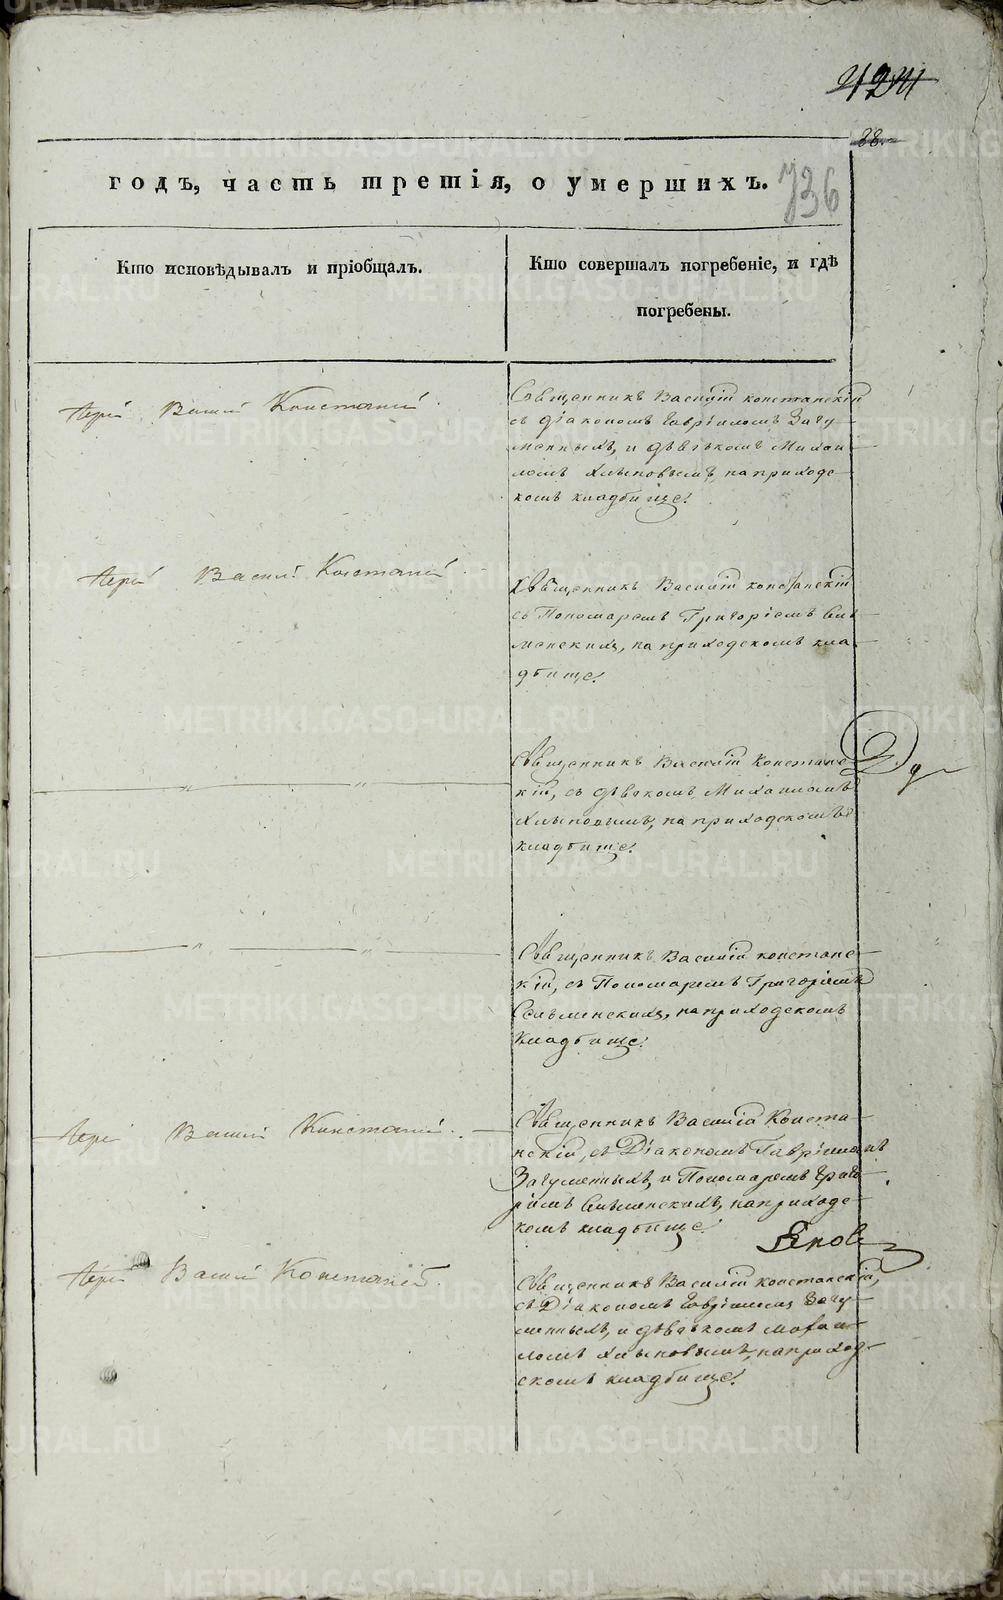 424
88.
годъ, часть третія, о умершихъ.
736
Кто исповѣдывалъ и пріобщалъ.
Кто совершалъ погребеніе, и гдѣ
погребены.
Іерей Васил Констанскій
Священникъ Василій констанскій
съ діакономъ Гавріиломъ Загу-
менныхъ, и дьячкомъ Михаи
ломъ Хлыновымъ, на приходс
комъ кладбище.
Іерей Василій Констанскій
Священникъ Василій констанскій
съ Пономаремъ Григоріемъ
на приходскомъ кла-
дбище.
Священникъ Василій Констанс-
кій, съ дьячкомъ Михаиломъ
Хлыновымъ, на приходскомъ
кладбище.
Священникъ Василій констанс-
кій, съ Пономаремъ Григоріемъ
на приходскомъ
Кладбище.
Іерей Василій Констанскій
Священникъ Василій Конста-
нскій, съ Діакономъ Гавріиломъ
Загуменныхъ, и Пономаремъ Григо-
ріемъ на приходс-
комъ кладбище.
Іерей Василій Констанскій
Священникъ Василій констанскій,
съ Діакономъ Гавріиломъ Загу-
менныхъ, и дьячкомъ Михаи-
ломъ Хлыновымъ, на приход-
скомъ кладбище.
METRIKI.GASO-URAL.RU